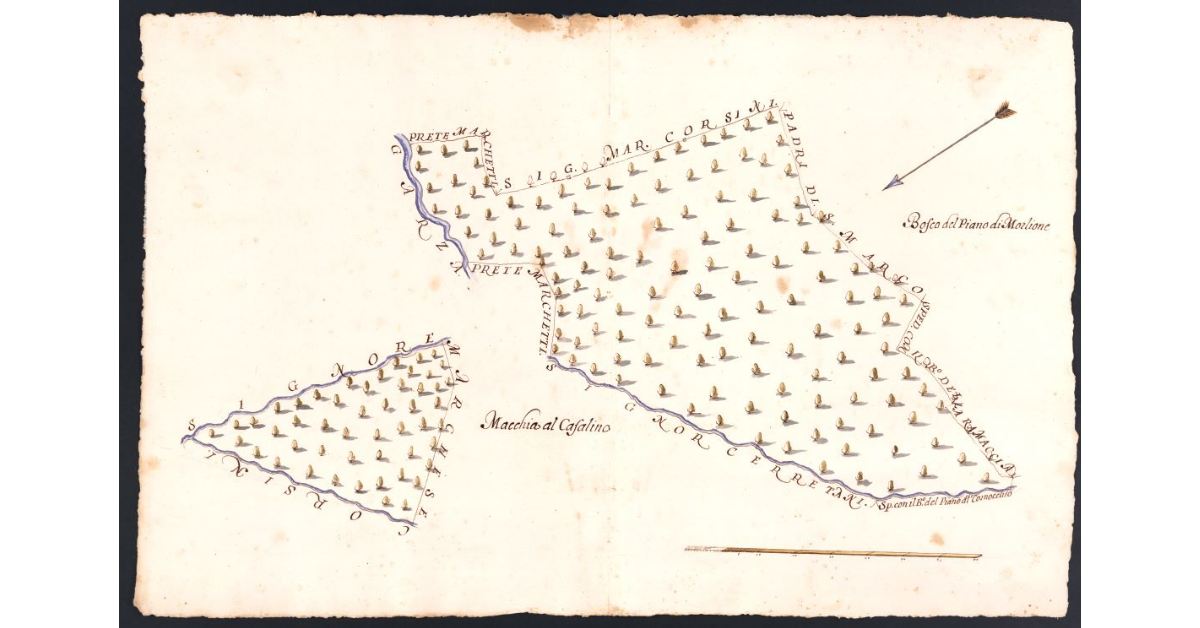 PRETE MARCHETTI.
SIG. MAR. CORSINI.
PADRI DI S. MARCO
GARZA
Bosco del Piano di Morlione
PRETE MARCHETTI.
SP. ED. CON IL
Bo. DELLA RAMACCIA
SIGNORE MARCHESE
CORSINI
Macchia al Casalino
SIGNOR CERRETANI.
Sp. con il Bo. del Piano al Cornocchio